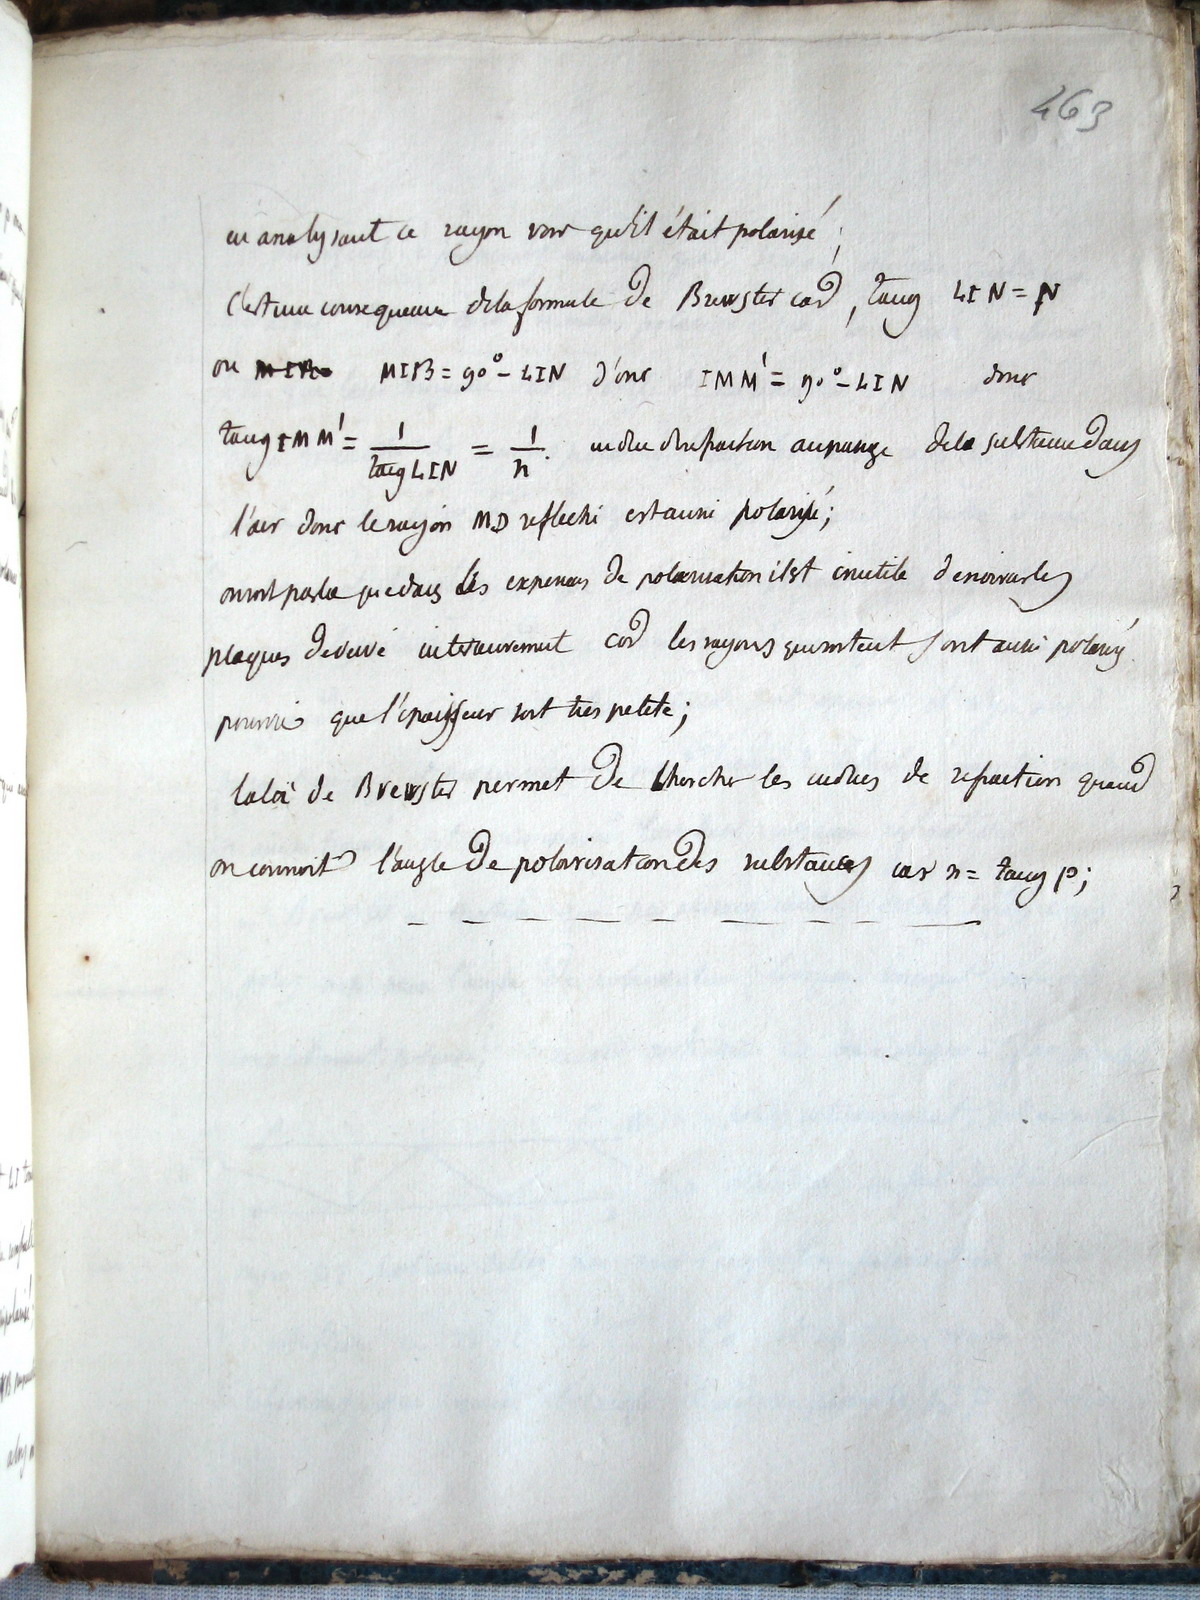 463
en analysant ce rayon voir qu'il était polarisé;
C'est une consequence de la formule de Brewster car, tang LIN = N
on MIB MIB = 90° - LIN donc IMM' = 90° - LIN donc
tang IMM' = 1/tang LIN = 1/n. indice de refraction au passage de la substance dans
l'air donc le rayon MD reflechi est aussi polarisé;
on voit par la que dans les experiences de polarisation il est inutile de noircir les
plaques de verre interieurement car les rayons qui sortent sont aussi polarisés
pourvu que l'épaisseur soit tres petite;
la loi de Brewster permet de chercher les indices de refraction quand
on connoit l'angle de polarisation des substances car n = tang p;